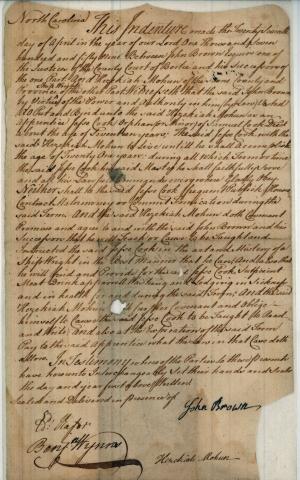 North Carolina
This Indenture made the Twenty Seventh
day of April in the year of our Lord One Thousand Seven
hundred and fifty Between John Brown Esquire one of
the Justices of the County Court of Bertie and his Successors of
the one Part And Hezekiah Mohun of the County and
Province of the other Part Witnesseth that the said John Brown
by Virtue of the Power and Authority in him
do Put and Bind unto the said Hezekiah Mohun as an
Apprentice Jesse Cook Orphan of Cook Decd
about the age of Seventeen years The said Jesse Cook with the
said Hezekiah Mohun to live untill he shall accomplish
the age of Twenty One years during all which Term or time
the said Jesse Cook his said Master shall faithfully serve
Neither shall the said Jesse Cook frequent
Contract Matrimony or Commit Fornication during the
said Term And the said Hezekiah Mohun doth Covenant
Promise and agree to and with the said John Brown and his
Successors that he will Teach or Cause to be Taught and
Instructed the said Jesse Cook in the Art and Mistery of a
Ship Wright in the best Manner that he Can And also that
he will find and Provide for the said Jesse Cook Sufficient
Meat Drink apparel Washing and Lodging in Sickness
and in health for and during the said Term And the said
Hezekiah Mohun and oblige
himself to Cause the said Jesse Cook to be Taught to Read
and Write And also at the Expiration of the said Term
Pay to the said Apprentice what the Law in that Case doth
allow In Testimony whereof the Parties to these Presents
have hereunto Interchangeably Set their hands and seals
the day and year first above Written
Sealed and Delivered in presence of
John Brown
Benja Wynns
Hezekiah Mohun